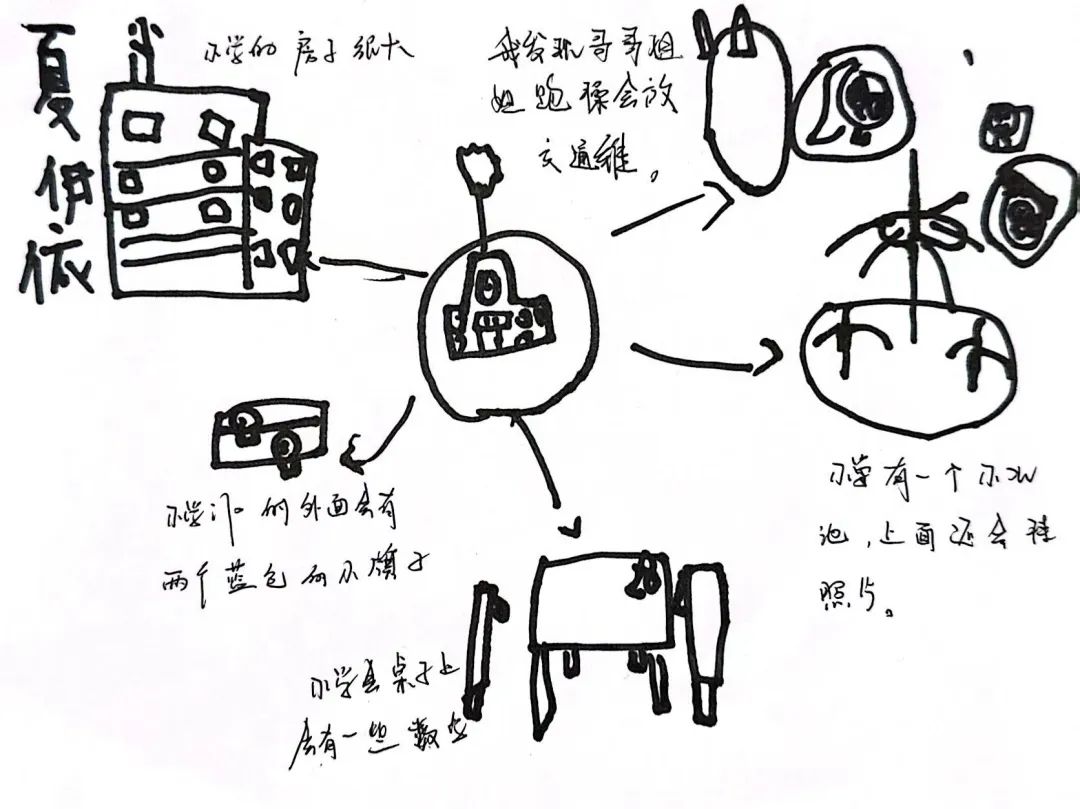 夏
伊
依
小学的房子很大
我发现哥哥姐
姐跑操会放
交通锥。
小学门口的外面会有
两个蓝色的小旗子
小学有一个小水
池，上面还会挂
照片。
小学生桌子上
会有一些数字
28